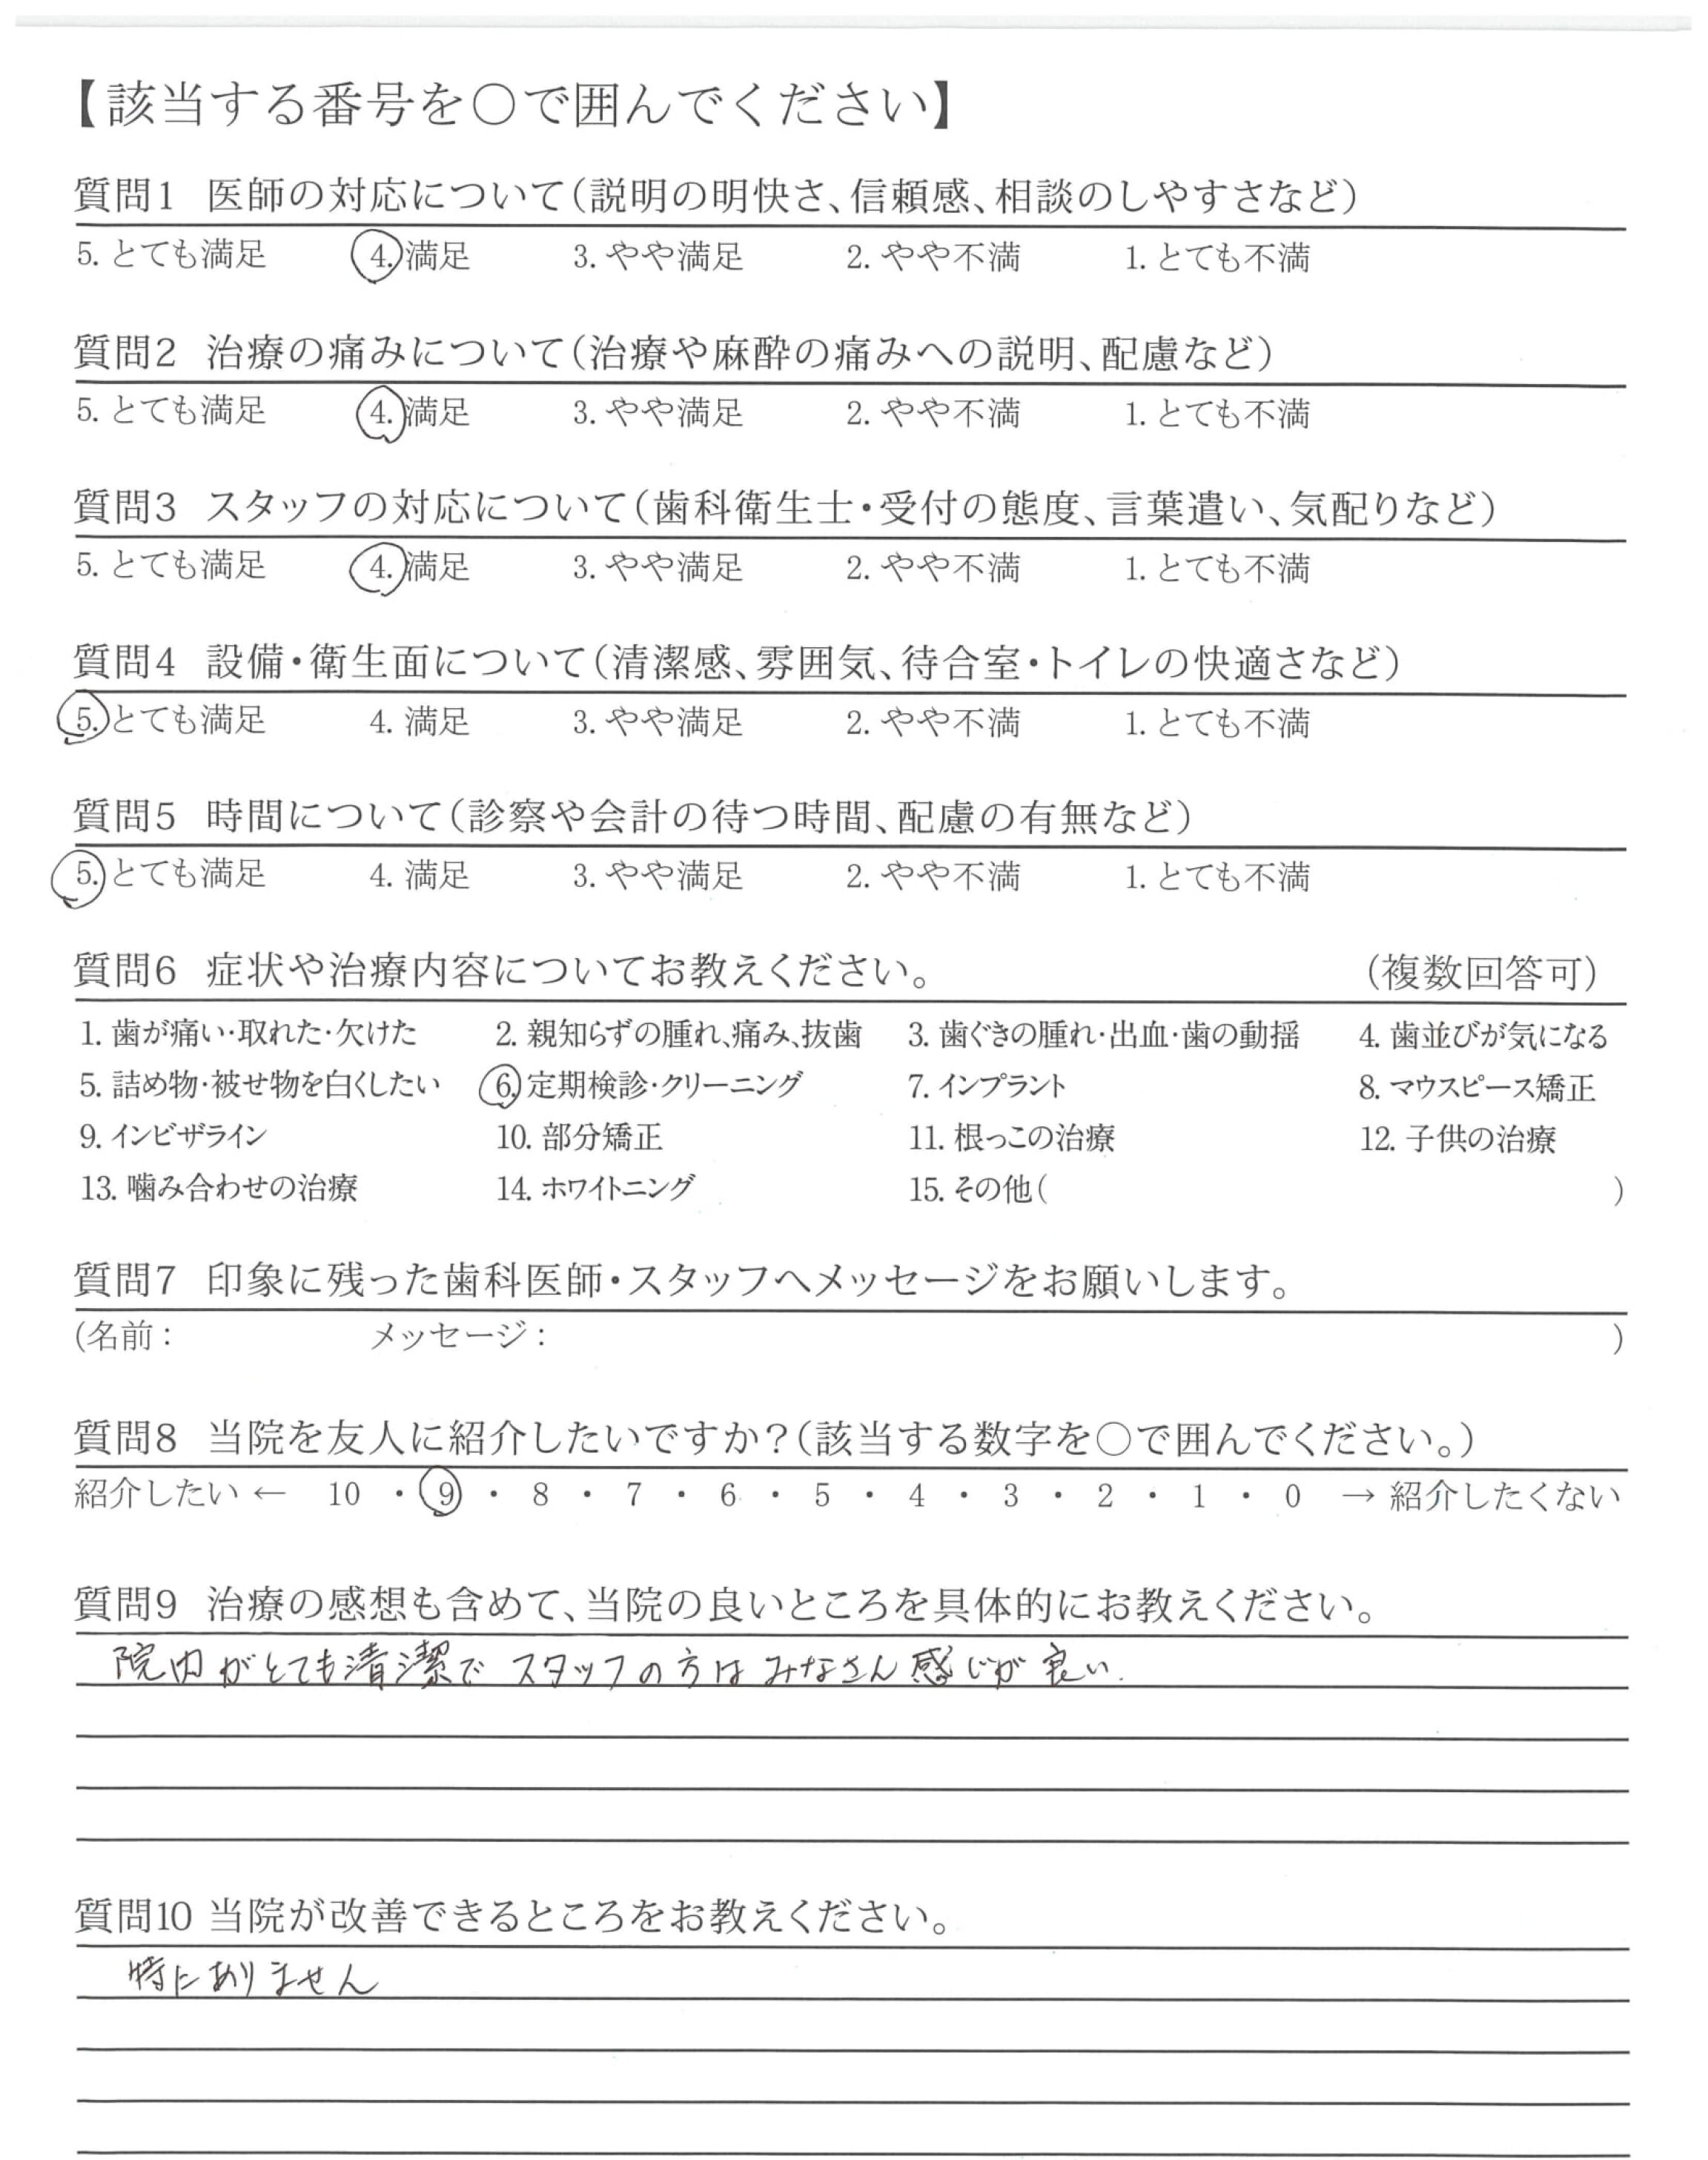 【該当する番号を○で囲んでください】
質問1 医師の対応について(説明の明快さ、信頼感、相談のしやすさなど)
5. とても満足 4. 満足 3. やや満足 2. やや不満 1. とても不満
質問2 治療の痛みについて(治療や麻酔の痛みへの説明、配慮など)
5. とても満足 4. 満足 3. やや満足 2. やや不満 1. とても不満
質問3 スタッフの対応について(歯科衛生士・受付の態度、言葉遣い、気配りなど)
5. とても満足 4. 満足 3. やや満足 2. やや不満 1. とても不満
質問4 設備・衛生面について(清潔感、雰囲気、待合室・トイレの快適さなど)
5. とても満足 4. 満足 3. やや満足 2. やや不満 1. とても不満
質問5 時間について(診察や会計の待つ時間、配慮の有無など)
5. とても満足 4. 満足 3. やや満足 2. やや不満 1. とても不満
質問6 症状や治療内容についてお教えください。 (複数回答可)
1. 歯が痛い・取れた・欠けた 2. 親知らずの腫れ、痛み、抜歯 3. 歯ぐきの腫れ・出血・歯の動揺 4. 歯並びが気になる
5. 詰め物・被せ物を白くしたい 6. 定期検診・クリーニング 7. インプラント 8. マウスピース矯正
9. インビザライン 10. 部分矯正 11. 根っこの治療 12. 子供の治療
13. 噛み合わせの治療 14. ホワイトニング 15. その他( )
質問7 印象に残った歯科医師・スタッフへメッセージをお願いします。
(名前: メッセージ: )
質問8 当院を友人に紹介したいですか?(該当する数字を○で囲んでください。)
紹介したい ← 10 ・ 9 ・ 8 ・ 7 ・ 6 ・ 5 ・ 4 ・ 3 ・ 2 ・ 1 ・ 0 → 紹介したくない
質問9 治療の感想も含めて、当院の良いところを具体的にお教えください。
院内がとても清潔で スタッフの方は みなさん 感じが 良い.
質問10 当院が改善できるところをお教えください。
特にありません